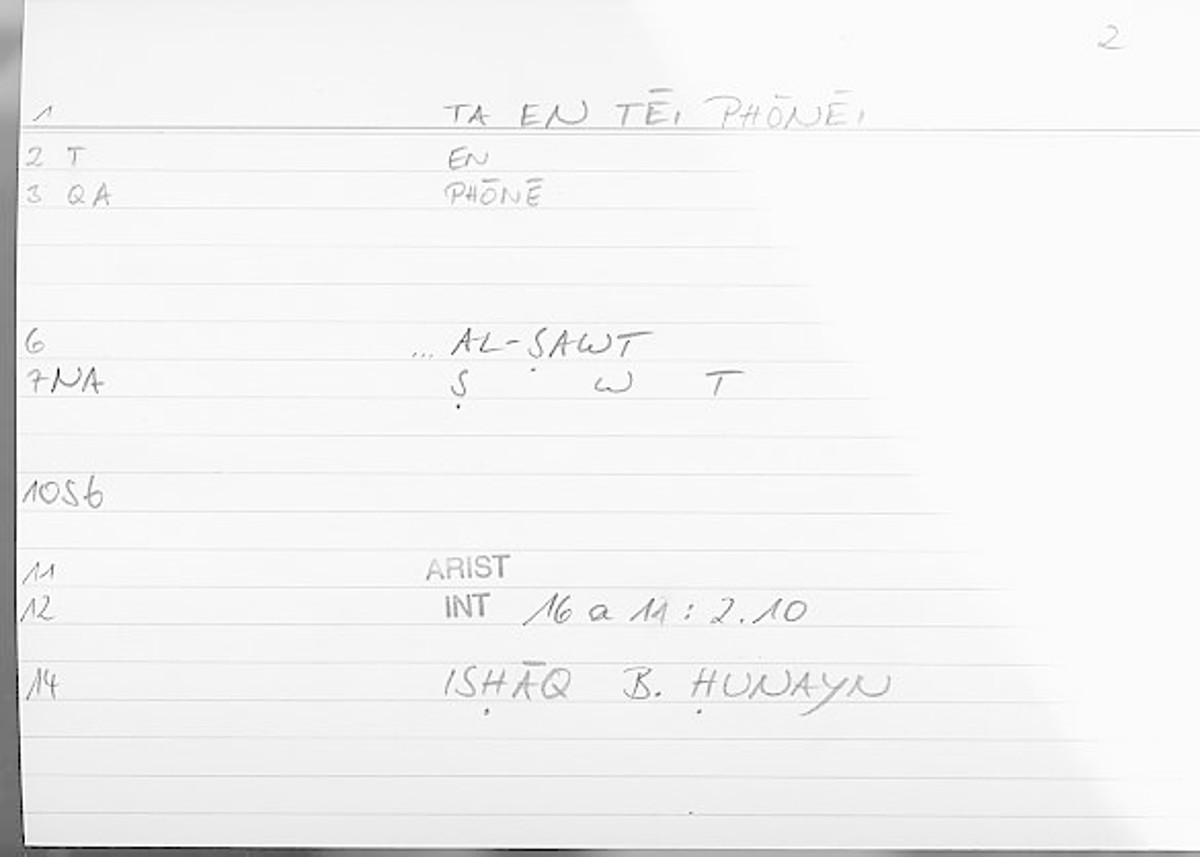 2
1 TA EN TĒI PHŌNĒI
2 T EN
3 QA PHŌNĒ
6 ... AL-ṢAWT
7NA Ṣ W T
10S6
11 ARIST
12 INT 16 a 11 : 2.10
14 ISḤĀQ B. ḤUNAYN